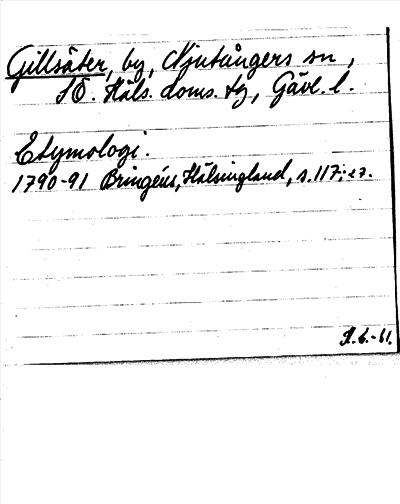 Gillsäter, by, Njutångers sn,
SÖ. Häls. doms. tg, Gävl. l.
Etymologi.
1790-91 Bringéus, Hälsingland, s. 117; ez.